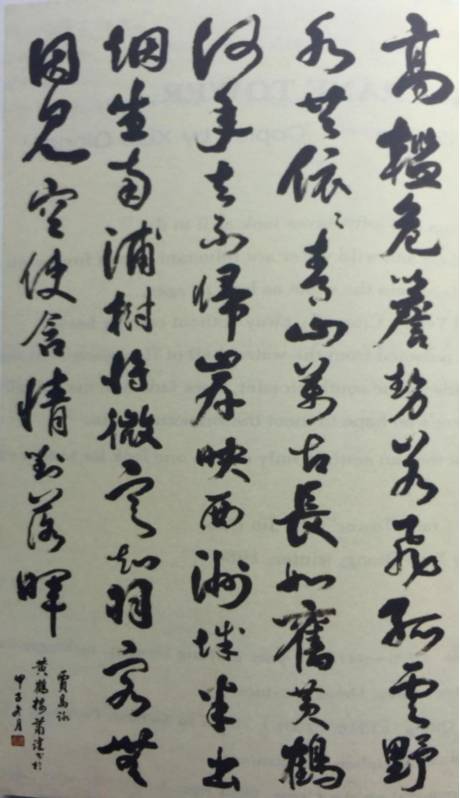 高檻危簷勢若飛孤雲野
水共依〻青山萬古長如舊黄鶴
何年去不歸岸映西洲城半出
烟生南浦樹將微定知羽客無
因見空使含情對落暉
賈島詩
黄鶴樓建書於
甲子冬月